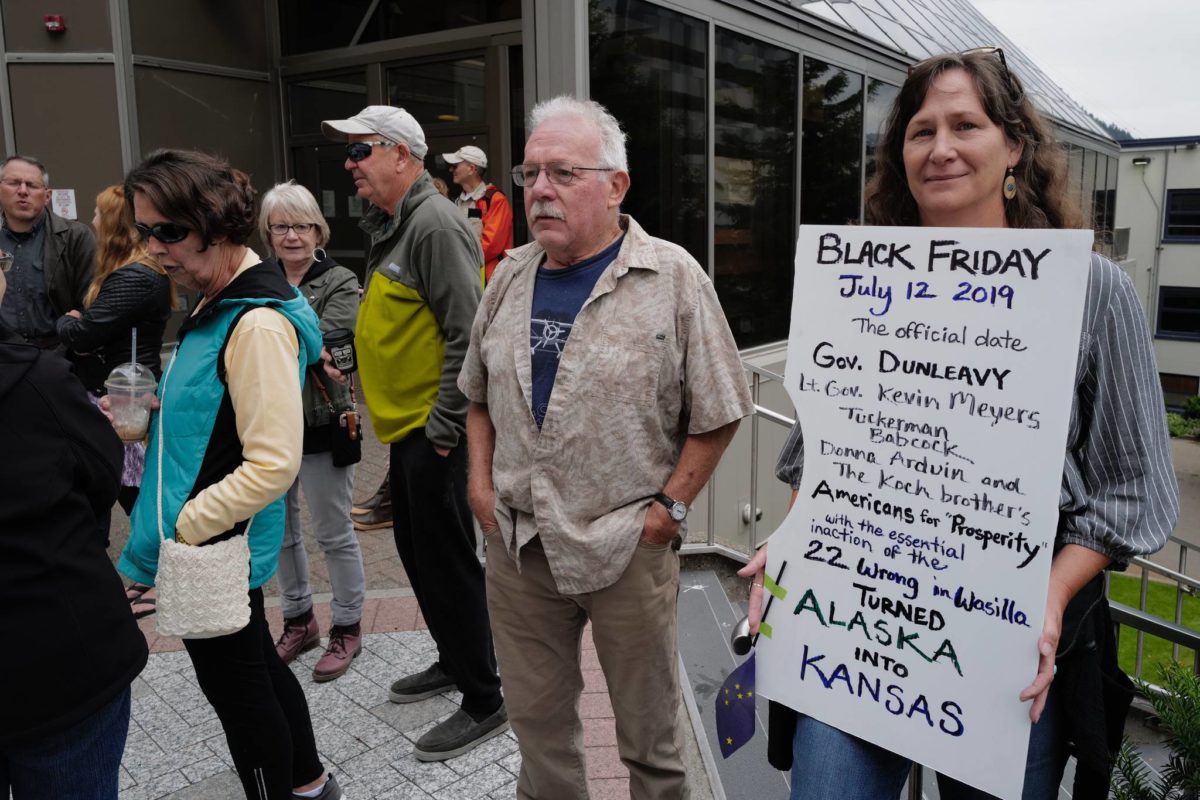 BLACK FRIDAY
July 12 2019
The official date
GOV. DUNLEAVY
Lt. Gov. Kevin Meyers
Tuckerman
Babcock....
Donna Arduin and
The Koch brother's
Americans for "Prosperity"
with the essential
inaction of the
22 Wrong in Wasilla
TURNED
ALASKA
INTO
KANSAS